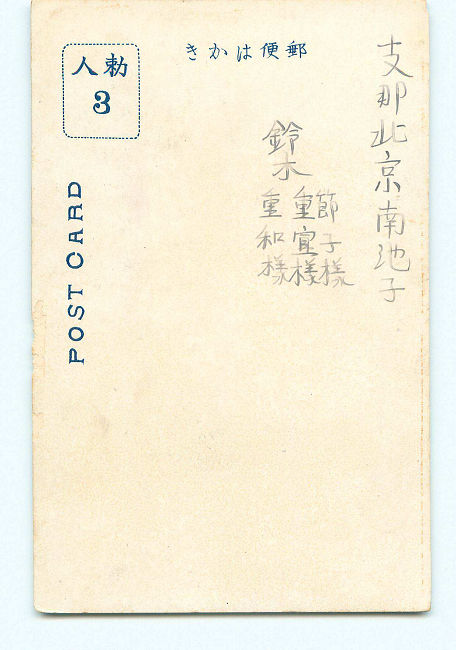 支那北京南池子
鈴木
節子様
重宜様
重和様
郵便はかき
勅人
3
POST CARD